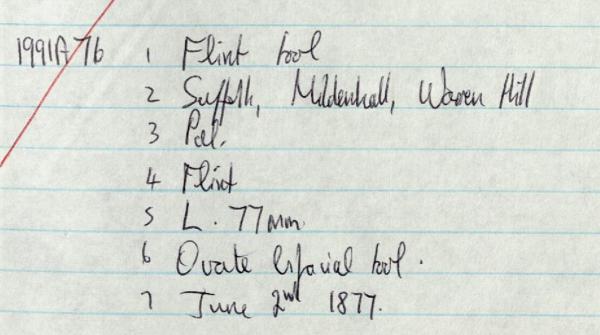 1991A 76 1 Flint tool
2 Suffolk, Mildenhall, Warren Hill
3 Pal.
4 Flint
5 L. 77mm.
6 Ovate bifacial tool.
7 June 2nd 1877.